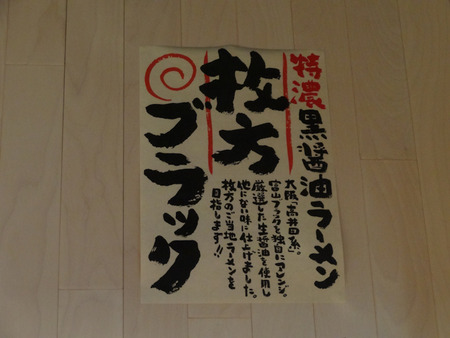 特濃黒醤油ラーメン
枚方
ブラック
大阪「高井田系」。
富山ブラックを独自にアレンジ。
厳選した生醤油を使用し
他にない味に仕上げました。
枚方のご当地ラーメンを
目指します!!